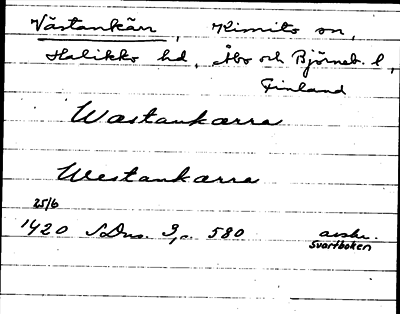 Västankärr, Kimito sn,
Halikko hd, Åbo och Björneb. l,
Finland
Wastankarra
Westankarra
25/6
1420 SDns. 3, s. 580 avskr.
Svartboken